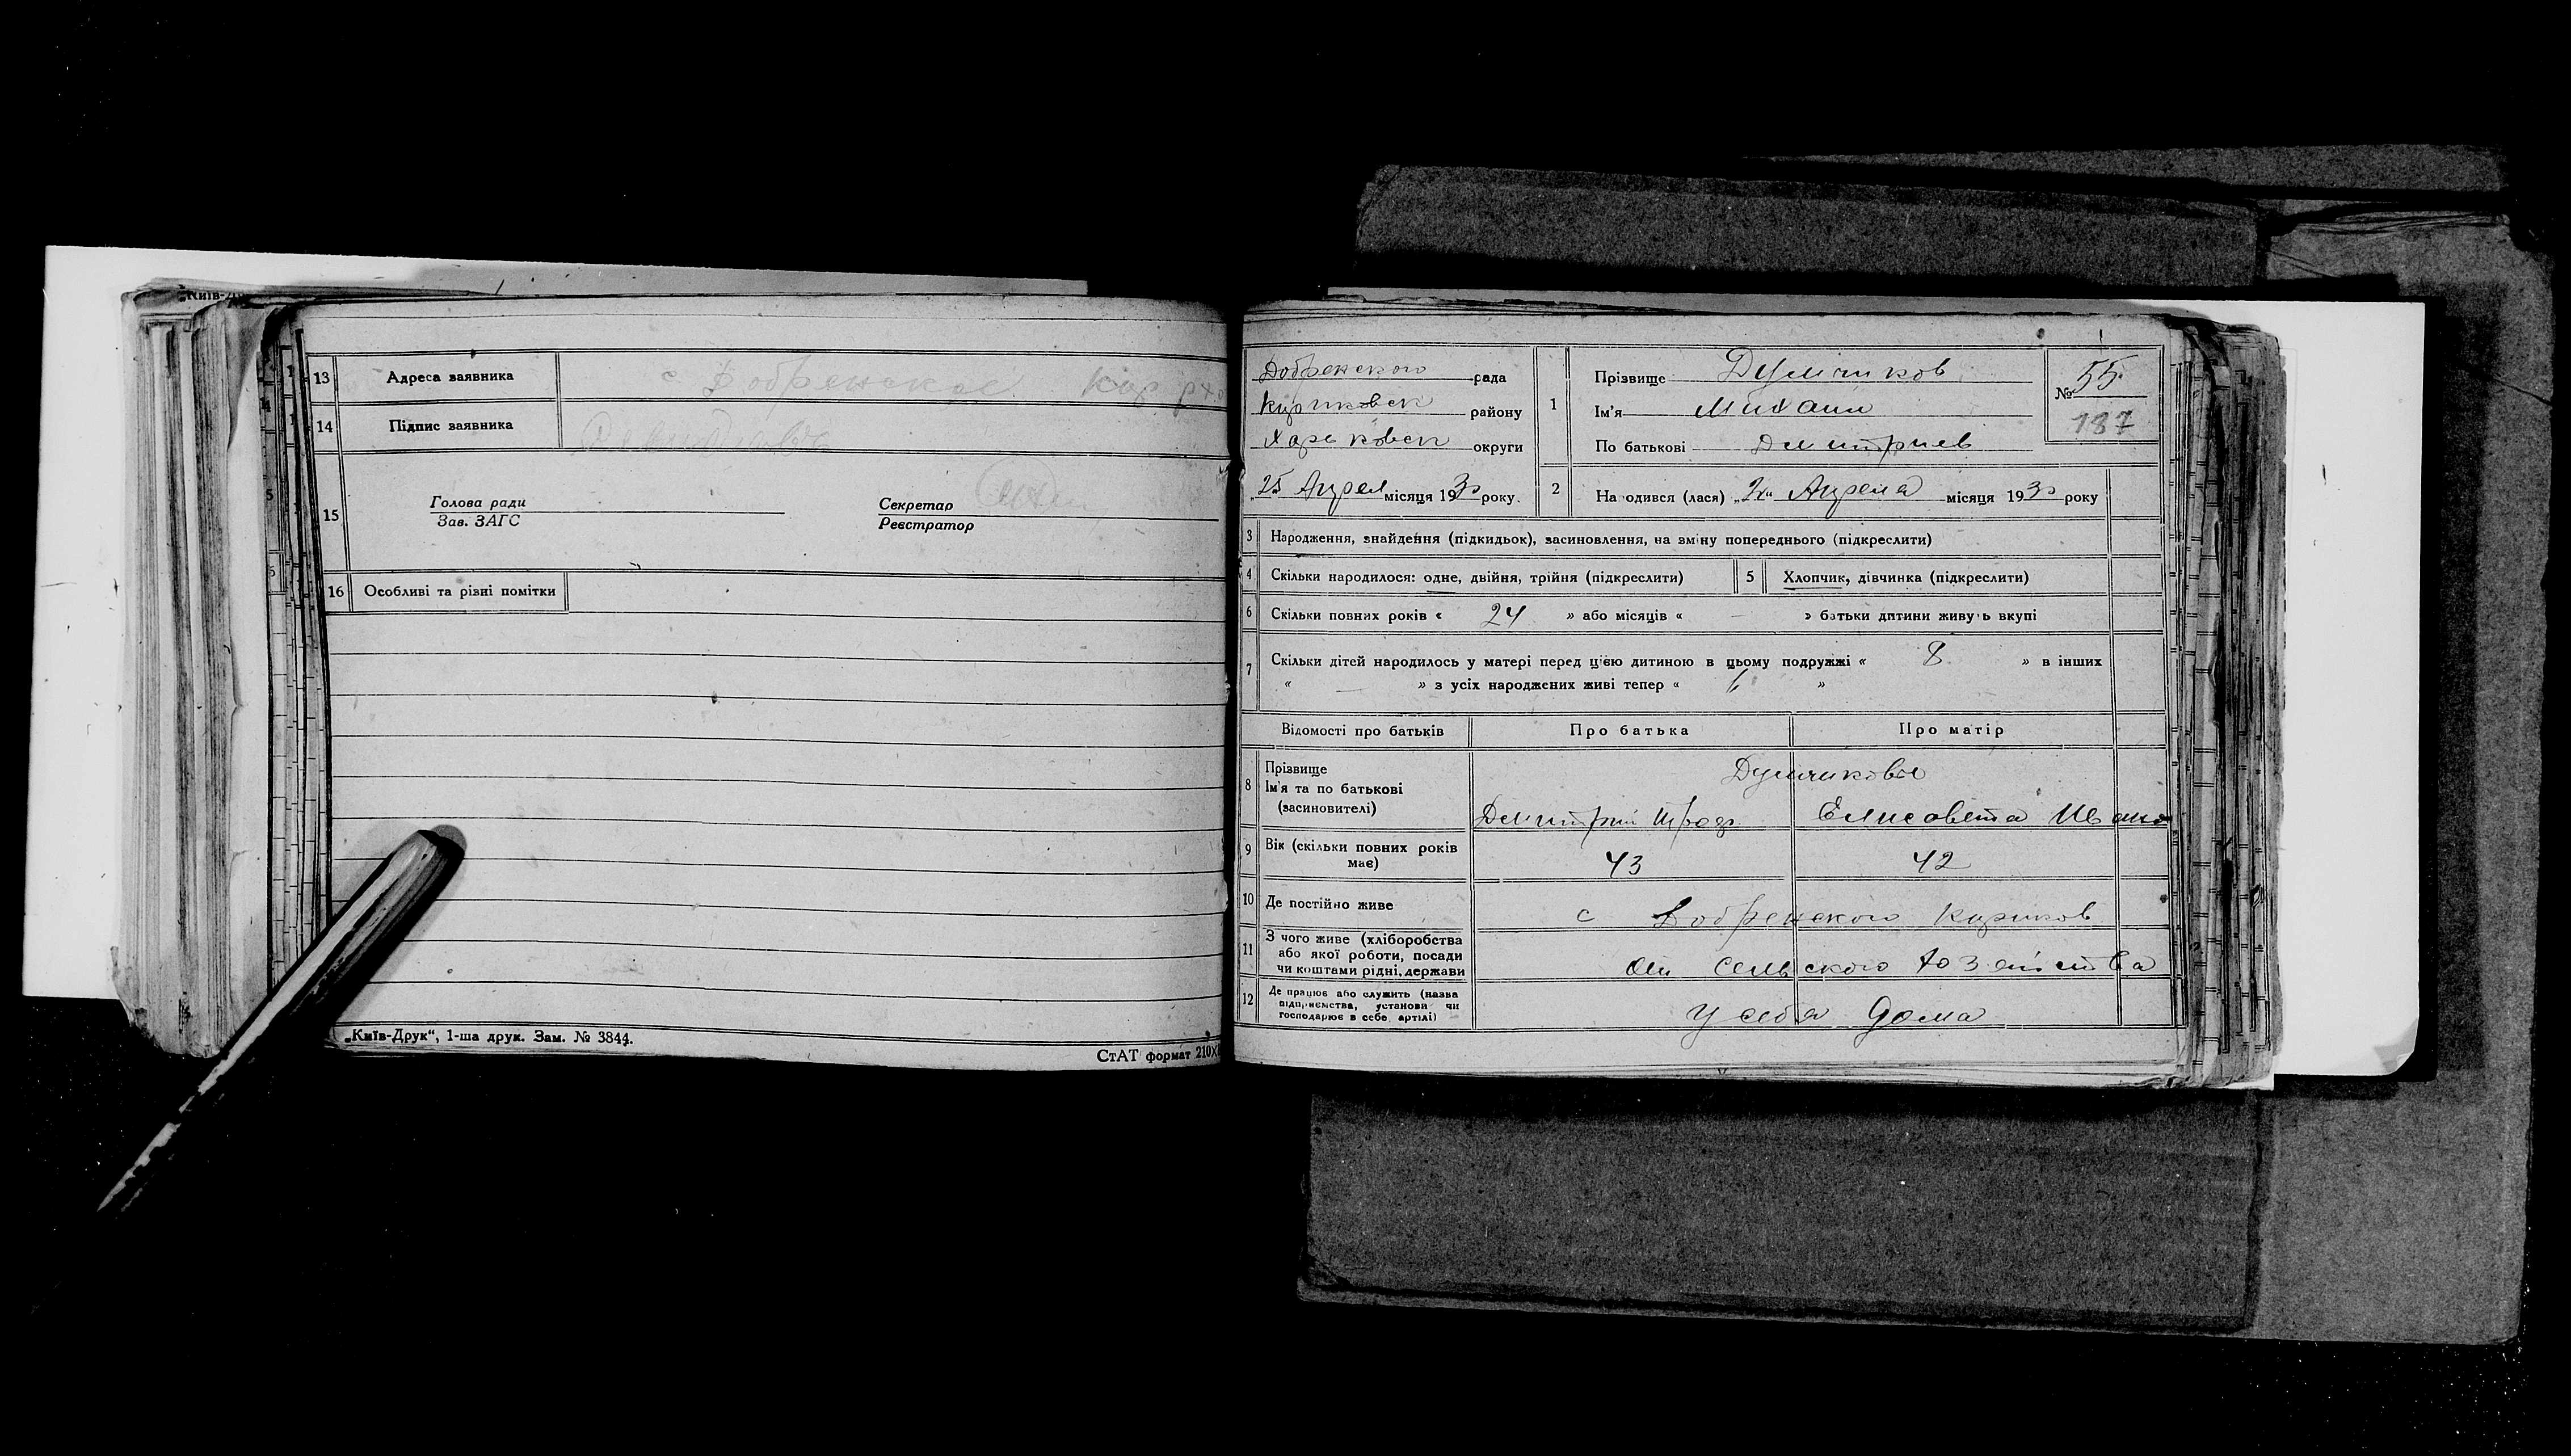 "Київ-Др
13 Адреса заявника с Добренское Кир р-
14 Підпис заявника
15 Голова ради
Зав. ЗАГС
Секретар
Реєстратор
16 Особливі та різні помітки
„Київ-Друк“, 1-ша друк. Зам. № 3844.
СтАТ формат 210×
Добренского рада
района
Харьковск округи
„25 Апрел місяця 1930 року.
1 Прізвище Думчиков
Ім'я Михаил
По батькові Дмитриев
№ 55
187
2 Народився (лася) Апреля місяця 1930 року
3 Народження, знайдення (підкидьок), засиновлення, на зміну попереднього (підкреслити)
4 Скільки народилося: одне, двійня, трійня (підкреслити) 5 Хлопчик, дівчинка (підкреслити)
6 Скільки повних років « 24 » або місяців « — » батьки дитини живуть вкупі
7 Скільки дітей народилось у матері перед цією дитиною в цьому подружжі « 8 » в інших
« — » з усіх народжених живі тепер « 6 »
Відомості про батьків Про батька Про матір
8 Прізвище
Ім'я та по батькові
(засиновителі)
Думчиковы
Дмитрий Елисовета Ивано
9 Вік (скільки повних років
має) 43 42
10 Де постійно живе с Добренского
11 З чого живе (хліборобства
або якої роботи, посади
чи коштами рідні, держави
От сельского хозяйства
12 Де працює або служить (назва
підприємства, установи чи
господарює в себе, артілі)
у себя дома